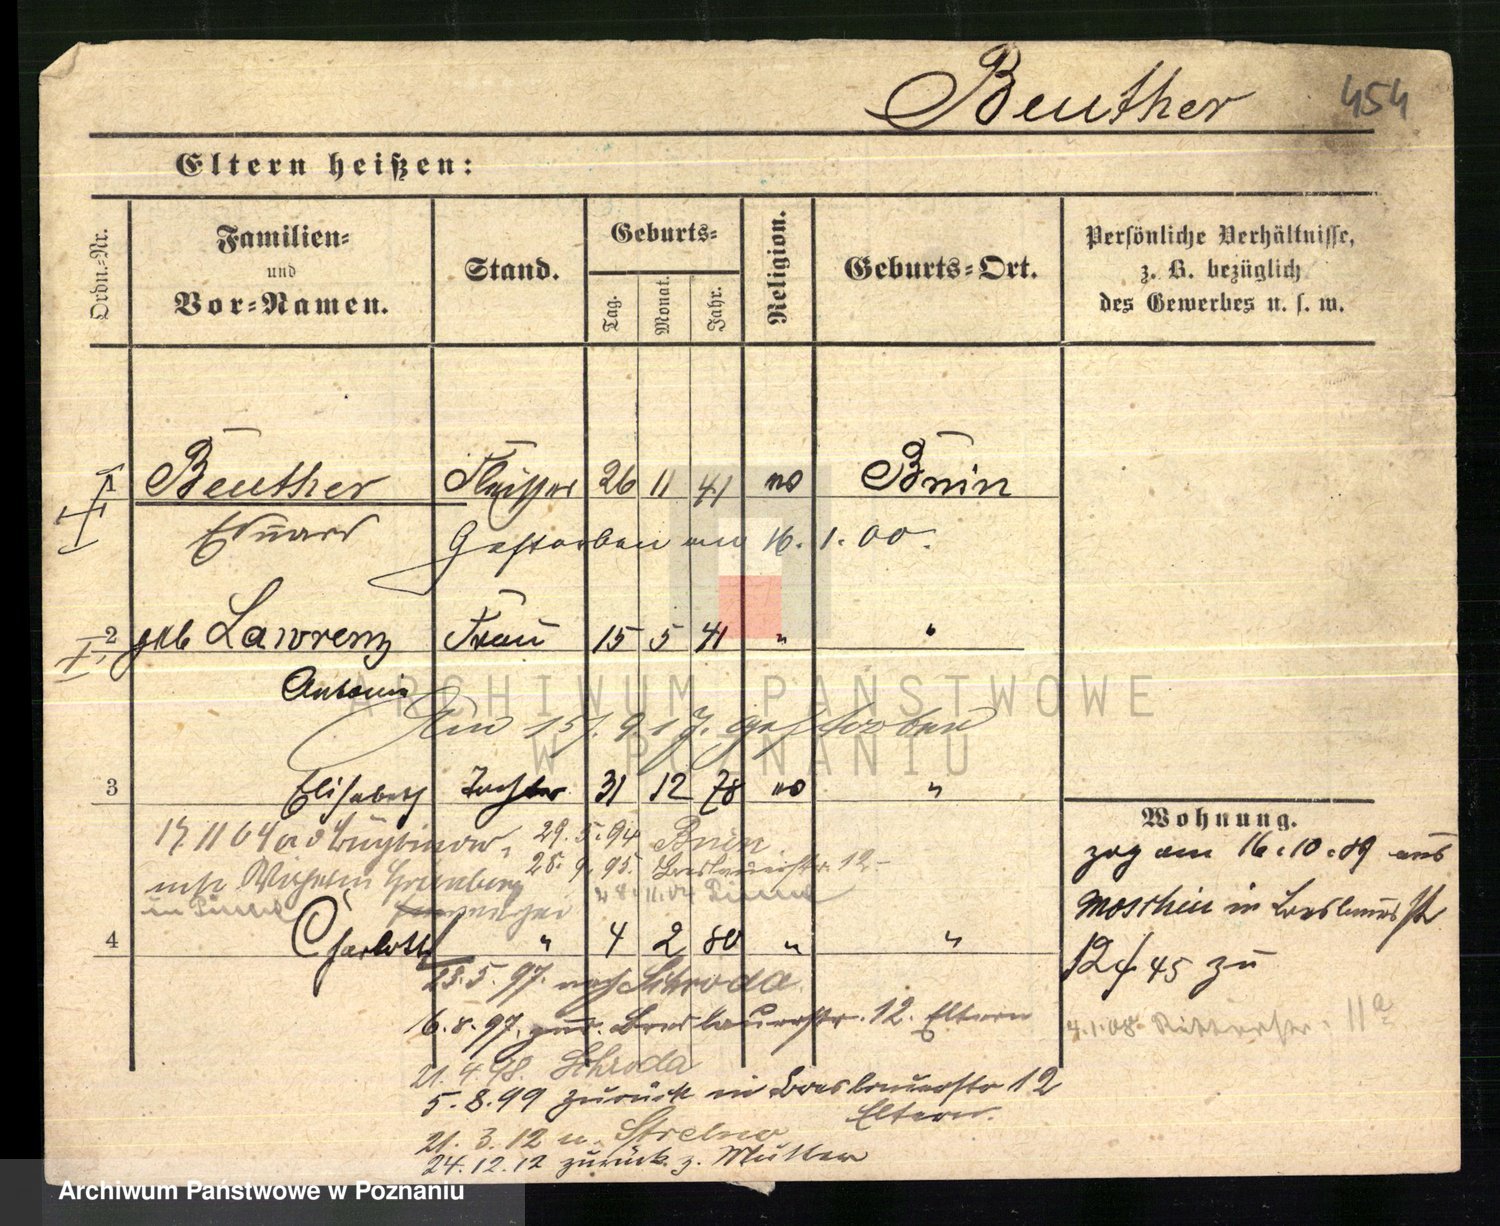 Beuther 454
Eltern heißen:
Ordn.-Nr.
Familien-
und
Vor-Namen.
Stand.
Geburts-
Tag.
Monat.
Jahr.
Religion.
Geburts-Ort.
Persönliche Verhältnisse,
z. B. bezüglich
des Gewerbes u. s. w.
1 Beuther Fleischer 26 11 41 Bnin
Eduard Gestorben am 16. 1. 00.
2 geb Lawrenz Frau 15 5 41 " "
Antonie
Am 15. 9. 17. gestorben
3 Elisabeth Tochter 31 12 78 "
29. 5. 94 Bnin
28. 9. 95. Breslauerstr. 12
Wilhelm
in Pinne Pinne
4 Charlotte " 4 2 80 " "
23. 5. 97. nach Schroda
6. 8. 97. zur. Breslauerstr. 12. Eltern
21. 4 98. Schroda
5. 8. 99 zurück in Breslauerstr 12
Eltern.
21. 3. 12 n. Strelno
24. 12. 12 zurück z. Mutter
Wohnung.
zog am 16. 10. 89 aus
Moschin in Breslauerstr
12/45 zu
4. 1. 08. Ritterstr. 11a
ARCHIWUM PAŃSTWOWE
W POZNANIU
Archiwum Państwowe w Poznaniu